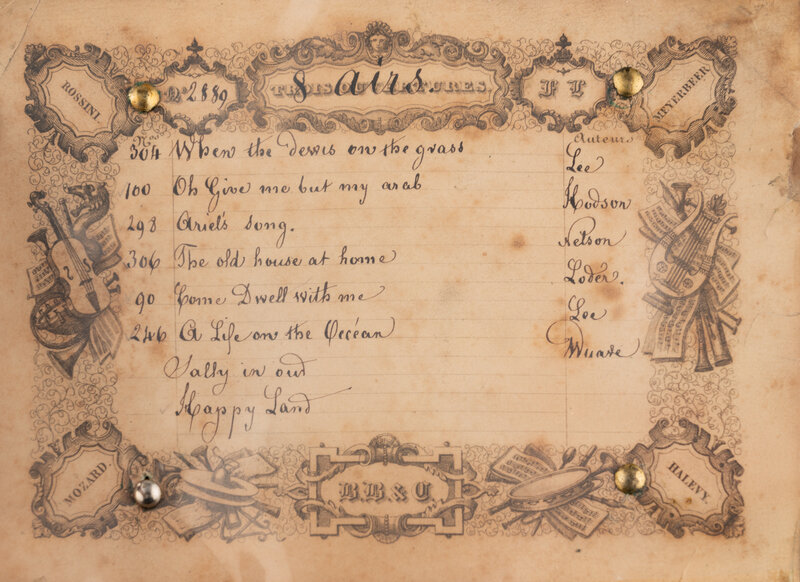 ROSSINI
No 2889
TROIS OUVERTURES.
8 airs.
F L
MEYERBEER.
Nos Auteurs
304 When the dewis on the grass Lee
100 Oh Give me but my arab Hodson
298 Ariel's song. Nelson
306 The old house at home Loder.
90 Come Dwell with me Lee
246 A Life on the Occéan
Sally in our
Happy Land
MOZARD.
B.B & C.
HALEVY.